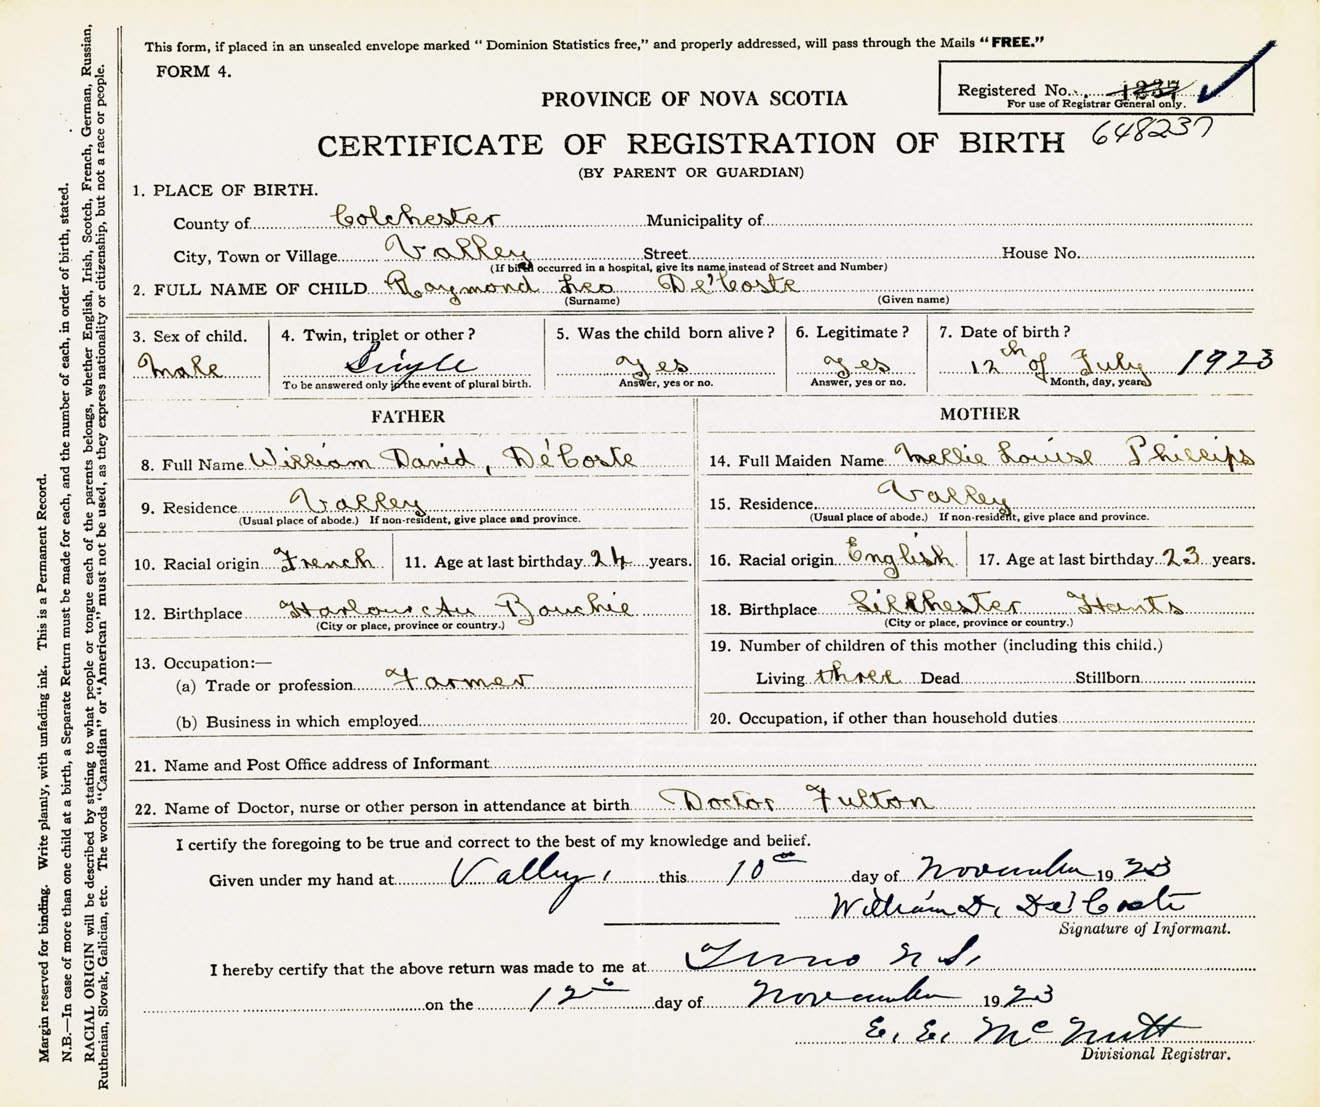 This form, if placed in an unsealed envelope marked "Dominion Statistics free," and properly addressed, will pass through the Mails "FREE."
FORM 4.
Registered No. 1237
For use of Registrar General only.
PROVINCE OF NOVA SCOTIA
648237
CERTIFICATE OF REGISTRATION OF BIRTH
(BY PARENT OR GUARDIAN)
1. PLACE OF BIRTH.
County of Colchester Municipality of
City, Town or Village Valley Street House No.
(If birth occurred in a hospital, give its name instead of Street and Number)
2. FULL NAME OF CHILD Raymond Leo De'Coste
(Surname) (Given name)
3. Sex of child. 4. Twin, triplet or other? 5. Was the child born alive? 6. Legitimate? 7. Date of birth?
Male Single Yes Yes 12th of July 1923
To be answered only in the event of plural birth. Answer, yes or no. Answer, yes or no. Month, day, year
FATHER MOTHER
8. Full Name William David, De'Coste 14. Full Maiden Name Nellie Louise Phillips
9. Residence Valley 15. Residence Valley
(Usual place of abode.) If non-resident, give place and province. (Usual place of abode.) If non-resident, give place and province.
10. Racial origin French 11. Age at last birthday 24 years. 16. Racial origin English 17. Age at last birthday 23 years.
12. Birthplace Harbour Au Bouchie 18. Birthplace Silchester Hants
(City or place, province or country.) (City or place, province or country.)
13. Occupation:— 19. Number of children of this mother (including this child.)
(a) Trade or profession Farmer Living three Dead Stillborn
(b) Business in which employed 20. Occupation, if other than household duties
21. Name and Post Office address of Informant
22. Name of Doctor, nurse or other person in attendance at birth Doctor Fulton
I certify the foregoing to be true and correct to the best of my knowledge and belief.
Given under my hand at Valley, this 10th day of November 1923
William D. De'Coste
Signature of Informant.
I hereby certify that the above return was made to me at Truro N S.
on the 12th day of November 1923
E. E. McNutt
Divisional Registrar.
Margin reserved for binding. Write plainly, with unfading ink. This is a Permanent Record.
N.B.—In case of more than one child at a birth, a Separate Return must be made for each, and the number of each, in order of birth, stated.
RACIAL ORIGIN will be described by stating to what people or tongue each of the parents belongs, whether English, Irish, Scotch, French, German, Russian,
Ruthenian, Slovak, Galician, etc. The words "Canadian" or "American" must not be used, as they express nationality or citizenship, but not a race or people.